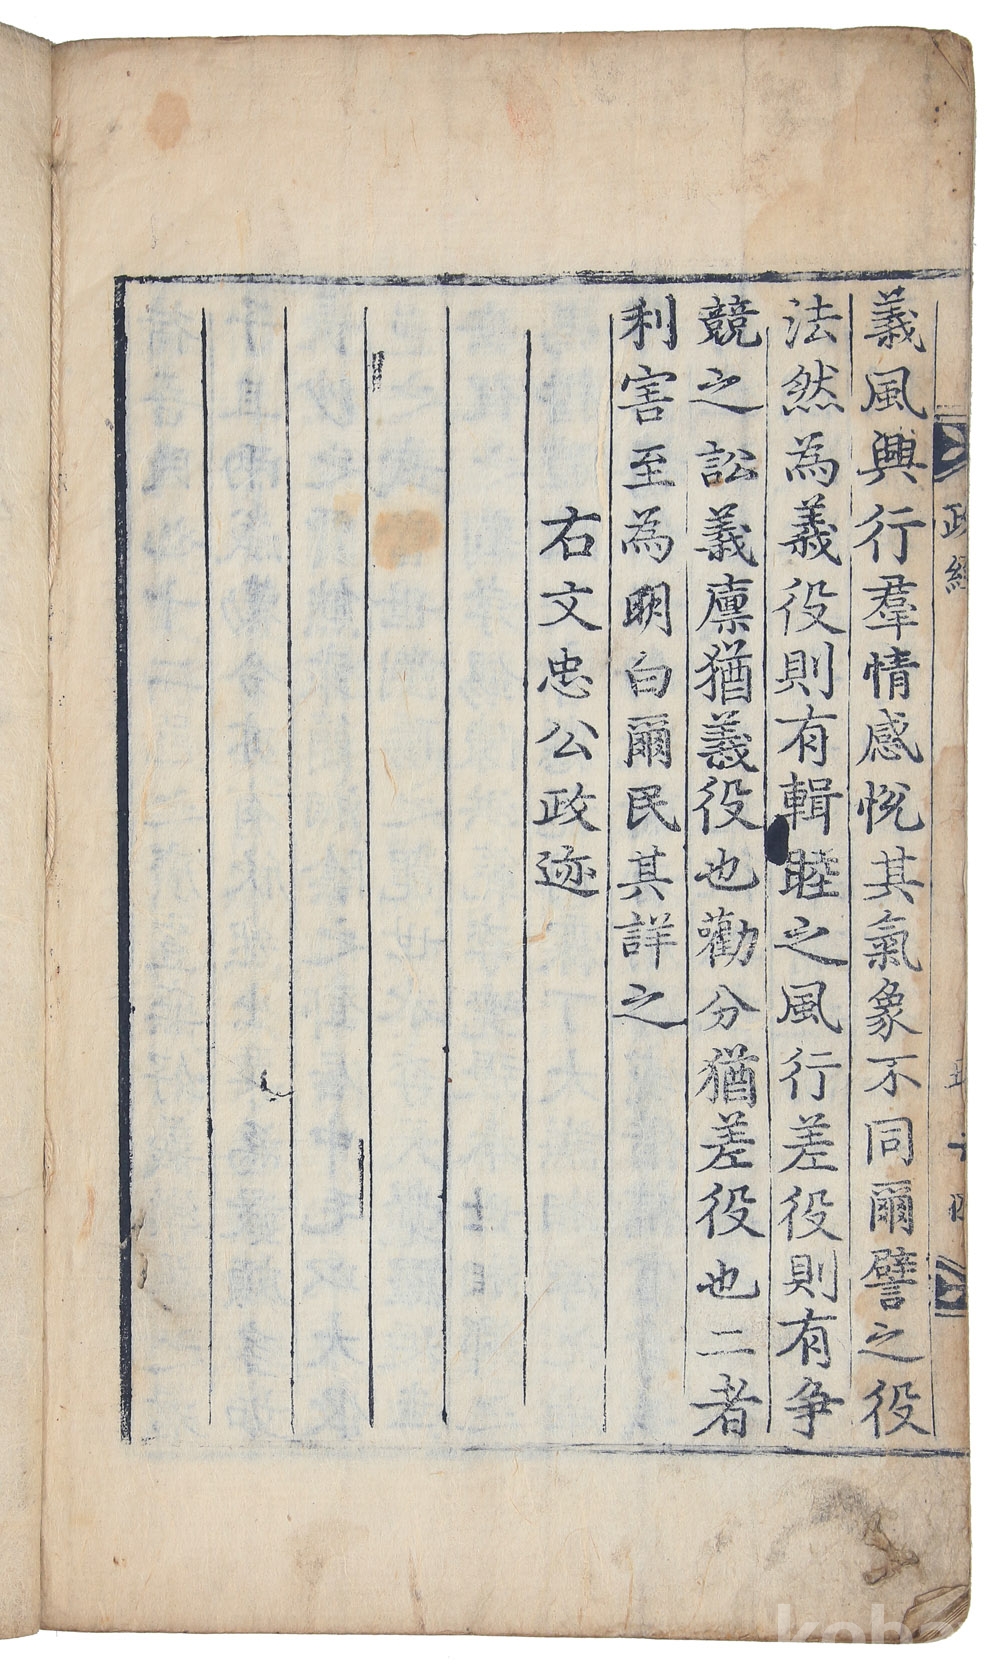 義風興行羣情感悅其氣象不同爾譬之役
法然為義役則有輯睦之風行差役則有爭
競之訟義廪猶義役也勸分猶差役也二者
利害至為明白爾民其詳之
右文忠公政迹
政經
koba